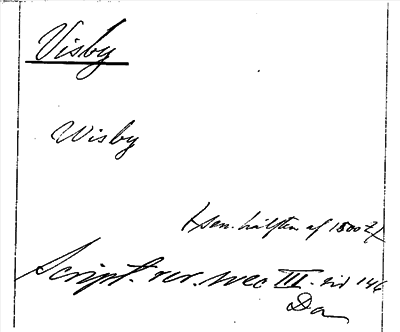 Visby
Wisby
(sen. hälften af 1500 t.)
Script. rer. svec III. sid 146